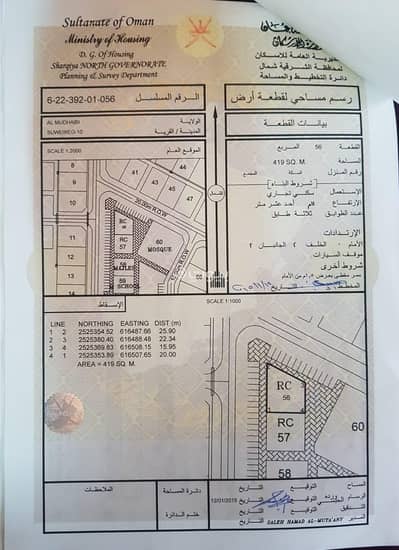 Sultanate of Oman
Ministry of Housing
D. G. Of Housing
Sharqiya NORTH GOVERNORATE
Planning & Survey Department
المديرية العامة للاسكان
لمحافظة الشرقية شمال
دائرة التخطيط والمساحة
6-22-392-01-056
الرقم المسلسل
رسم مساحي لقطعة أرض
AL MUDHAIBI
الولاية
المدينة / القرية
بيانات القطعة
SCALE 1:2000
الموقع العام
القطعة 56 المربع
المساحة 419 SQ. M.
رقم المنزل السكة المجمع
شروط البناء
الاستعمال سكني تجاري
الارتفاع
عدد الطوابق ثلاثة طابق
الإرتدادات
الأمام ٠ الخلف ٢ الجانبان ٢
موقف السيارات
شروط أخرى
المخطط
التاريخ
20.0m R.O.W
RC
56
RC
57
58
59
60
MOSQUE
MALES
SCHOOL
SCALE 1:1000
LINE NORTHING EASTING DIST (m)
1 2 2525354.52 616487.66 25.90
2 3 2525380.40 616488.48 22.34
3 4 2525369.83 616508.15 15.95
4 1 2525353.89 616507.65 20.00
AREA = 419 SQ. M.
RC
56
RC
57
58
60
الملاحظات
دائرة المساحة
ختم الدائرة
المساح التوقيع التاريخ
الرسام التوقيع التاريخ 12/01/2015
التدقيق التوقيع التاريخ
المدير SALEH HAMAD AL-MUTA'ANY